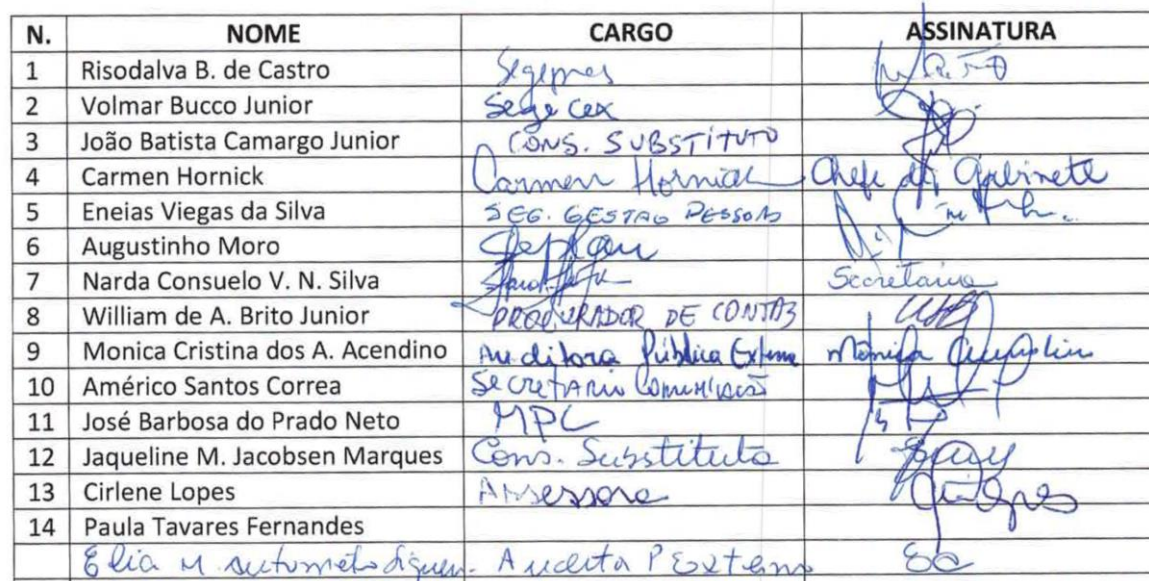 N. NOME CARGO ASSINATURA
1 Risodalva B. de Castro Segepres
2 Volmar Bucco Junior Segecex
3 João Batista Camargo Junior CONS. SUBSTITUTO
4 Carmen Hornick Carmen Hornick Chefe de Gabinete
5 Eneias Viegas da Silva SEG. GESTAO PESSOAS
6 Augustinho Moro Seplan
7 Narda Consuelo V. N. Silva Secretaria
8 William de A. Brito Junior PROCURADOR DE CONTAS
9 Monica Cristina dos A. Acendino Auditora Pública Externa Mônica
10 Américo Santos Correa Secretario Comunicação
11 José Barbosa do Prado Neto MPC
12 Jaqueline M. Jacobsen Marques Cons. Substituta
13 Cirlene Lopes Assessora
14 Paula Tavares Fernandes
Elia M.